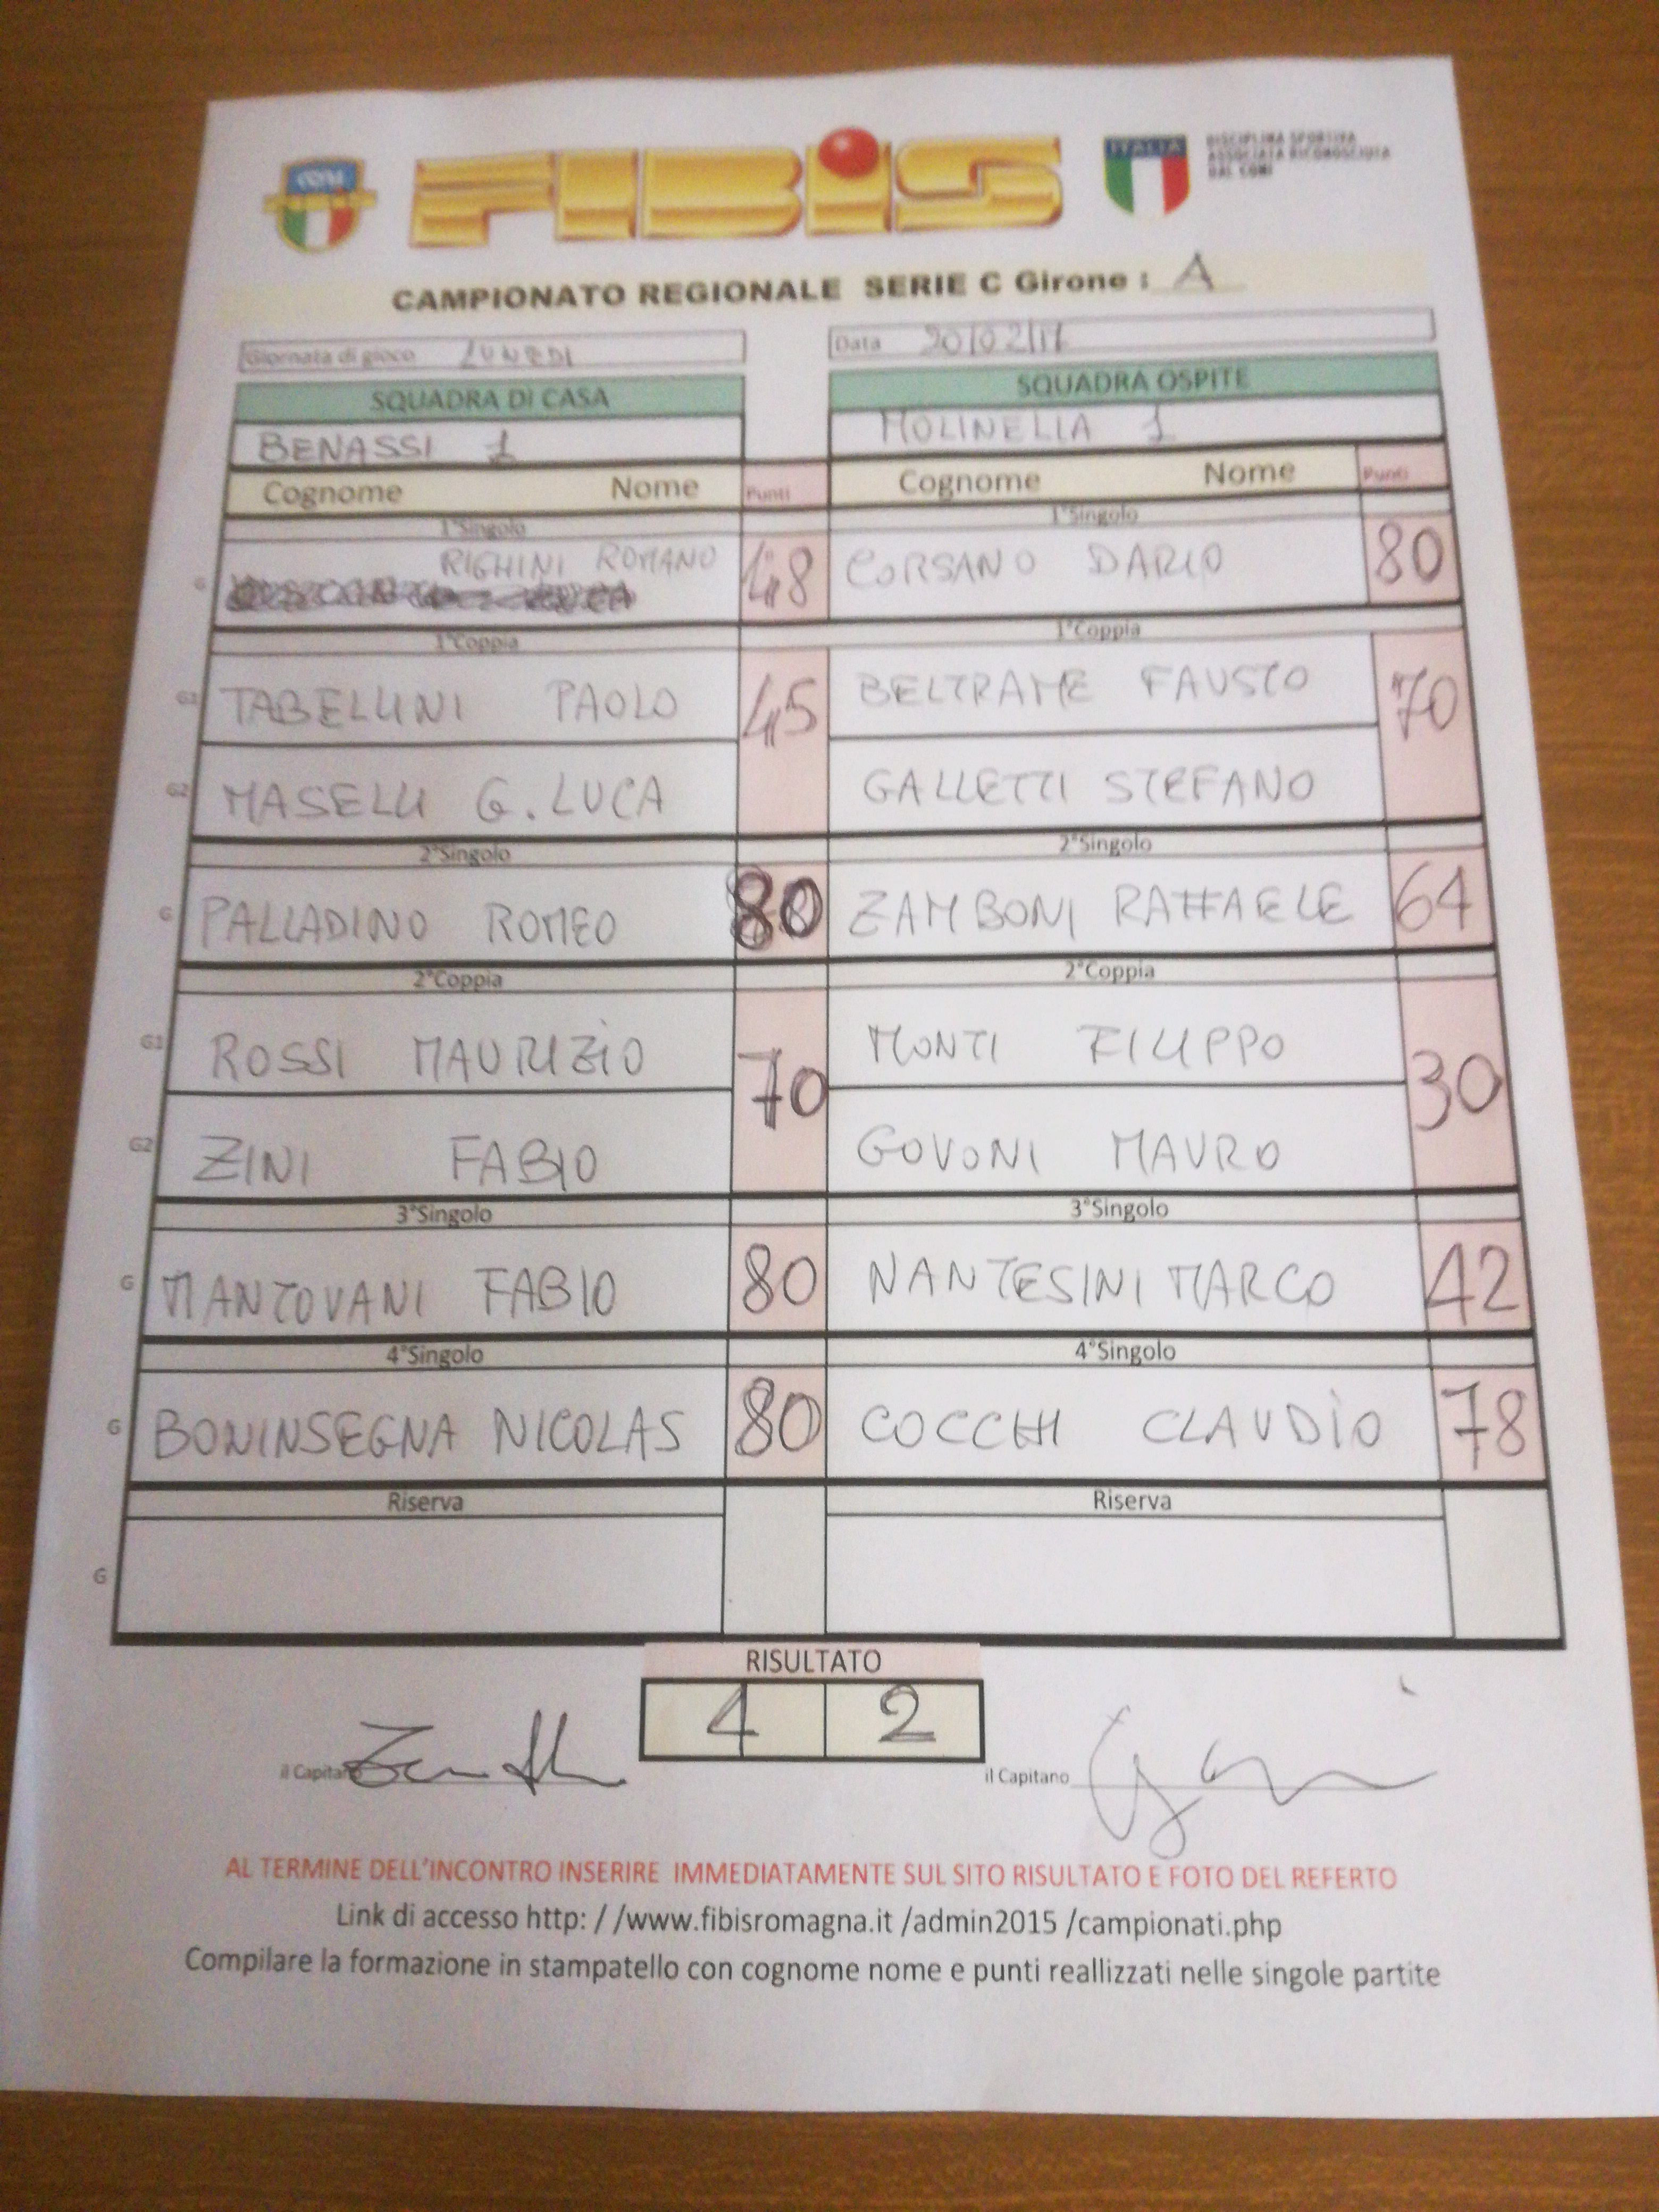 CONI
FIBiS
ITALIA
DISCIPLINA SPORTIVA
ASSOCIATA RICONOSCIUTA
DAL CONI
CAMPIONATO REGIONALE SERIE C Girone : A
Giornata di gioco LUNEDI
Data 20/02/17
SQUADRA DI CASA
SQUADRA OSPITE
BENASSI 1
MOLINELLA 1
Cognome Nome Punti
Cognome Nome Punti
1°Singolo
1°Singolo
G RIGHINI ROMANO 48
CORSANO DARIO 80
1°Coppia
1°Coppia
G1 TABELLINI PAOLO 45
BELTRAME FAUSTO 70
G2 MASELLI G. LUCA
GALLETTI STEFANO
2°Singolo
2°Singolo
G PALLADINO ROMEO 80
ZAMBONI RAFFAELE 64
2°Coppia
2°Coppia
G1 ROSSI MAURIZIO 70
MONTI FILIPPO 30
G2 ZINI FABIO
GOVONI MAURO
3°Singolo
3°Singolo
G MANTOVANI FABIO 80
NANTESINI MARCO 42
4°Singolo
4°Singolo
G BONINSEGNA NICOLAS 80
COCCHI CLAUDIO 78
Riserva
Riserva
G
RISULTATO
4 2
il Capitano
il Capitano
AL TERMINE DELL'INCONTRO INSERIRE IMMEDIATAMENTE SUL SITO RISULTATO E FOTO DEL REFERTO
Link di accesso http: / /www.fibisromagna.it /admin2015 /campionati.php
Compilare la formazione in stampatello con cognome nome e punti reallizzati nelle singole partite